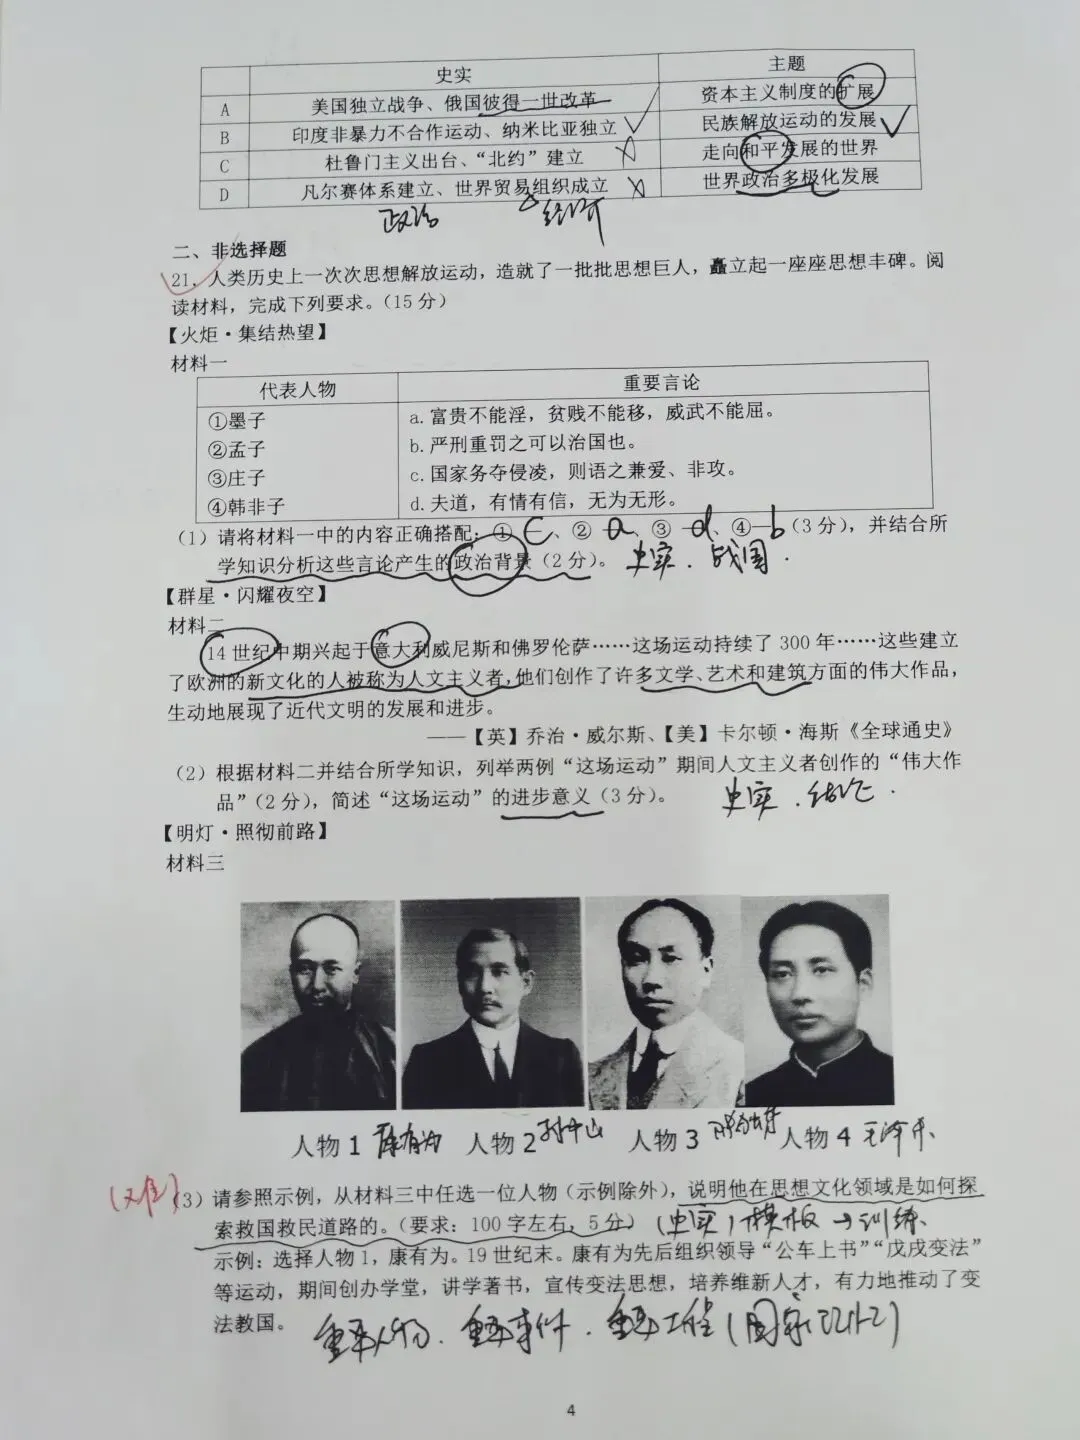 史实 主题
A 美国独立战争、俄国彼得一世改革 资本主义制度的扩展
B 印度非暴力不合作运动、纳米比亚独立 民族解放运动的发展
C 杜鲁门主义出台、“北约”建立 走向和平发展的世界
D 凡尔赛体系建立、世界贸易组织成立 世界政治多极化发展
政治 经济
二、非选择题
21. 人类历史上一次次思想解放运动，造就了一批批思想巨人，矗立起一座座思想丰碑。阅
读材料，完成下列要求。（15 分）
【火炬·集结热望】
材料一
代表人物 重要言论
①墨子 a. 富贵不能淫，贫贱不能移，威武不能屈。
②孟子 b. 严刑重罚之可以治国也。
③庄子 c. 国家务夺侵凌，则语之兼爱、非攻。
④韩非子 d. 夫道，有情有信，无为无形。
（1）请将材料一中的内容正确搭配：① c、② a、③ d、④ b（3 分），并结合所
学知识分析这些言论产生的政治背景（2 分）。 史实、战国.
【群星·闪耀夜空】
材料二
14 世纪中期兴起于意大利威尼斯和佛罗伦萨……这场运动持续了 300 年……这些建立
了欧洲的新文化的人被称为人文主义者，他们创作了许多文学、艺术和建筑方面的伟大作品，
生动地展现了近代文明的发展和进步。
——【英】乔治·威尔斯、【美】卡尔顿·海斯《全球通史》
（2）根据材料二并结合所学知识，列举两例“这场运动”期间人文主义者创作的“伟大作
品”（2 分），简述“这场运动”的进步意义（3 分）。 史实、结论.
【明灯·照彻前路】
材料三
人物 1 康有为 人物 2 孙中山 人物 3 陈独秀 人物 4 毛泽东
（3）请参照示例，从材料三中任选一位人物（示例除外），说明他在思想文化领域是如何探
索救国救民道路的。（要求：100 字左右，5 分）（史实）模板→训练
示例：选择人物 1，康有为。19 世纪末。康有为先后组织领导“公车上书”“戊戌变法”
等运动，期间创办学堂，讲学著书，宣传变法思想，培养维新人才，有力地推动了变
法教国。
重要人物、重要事件、重要工程
4